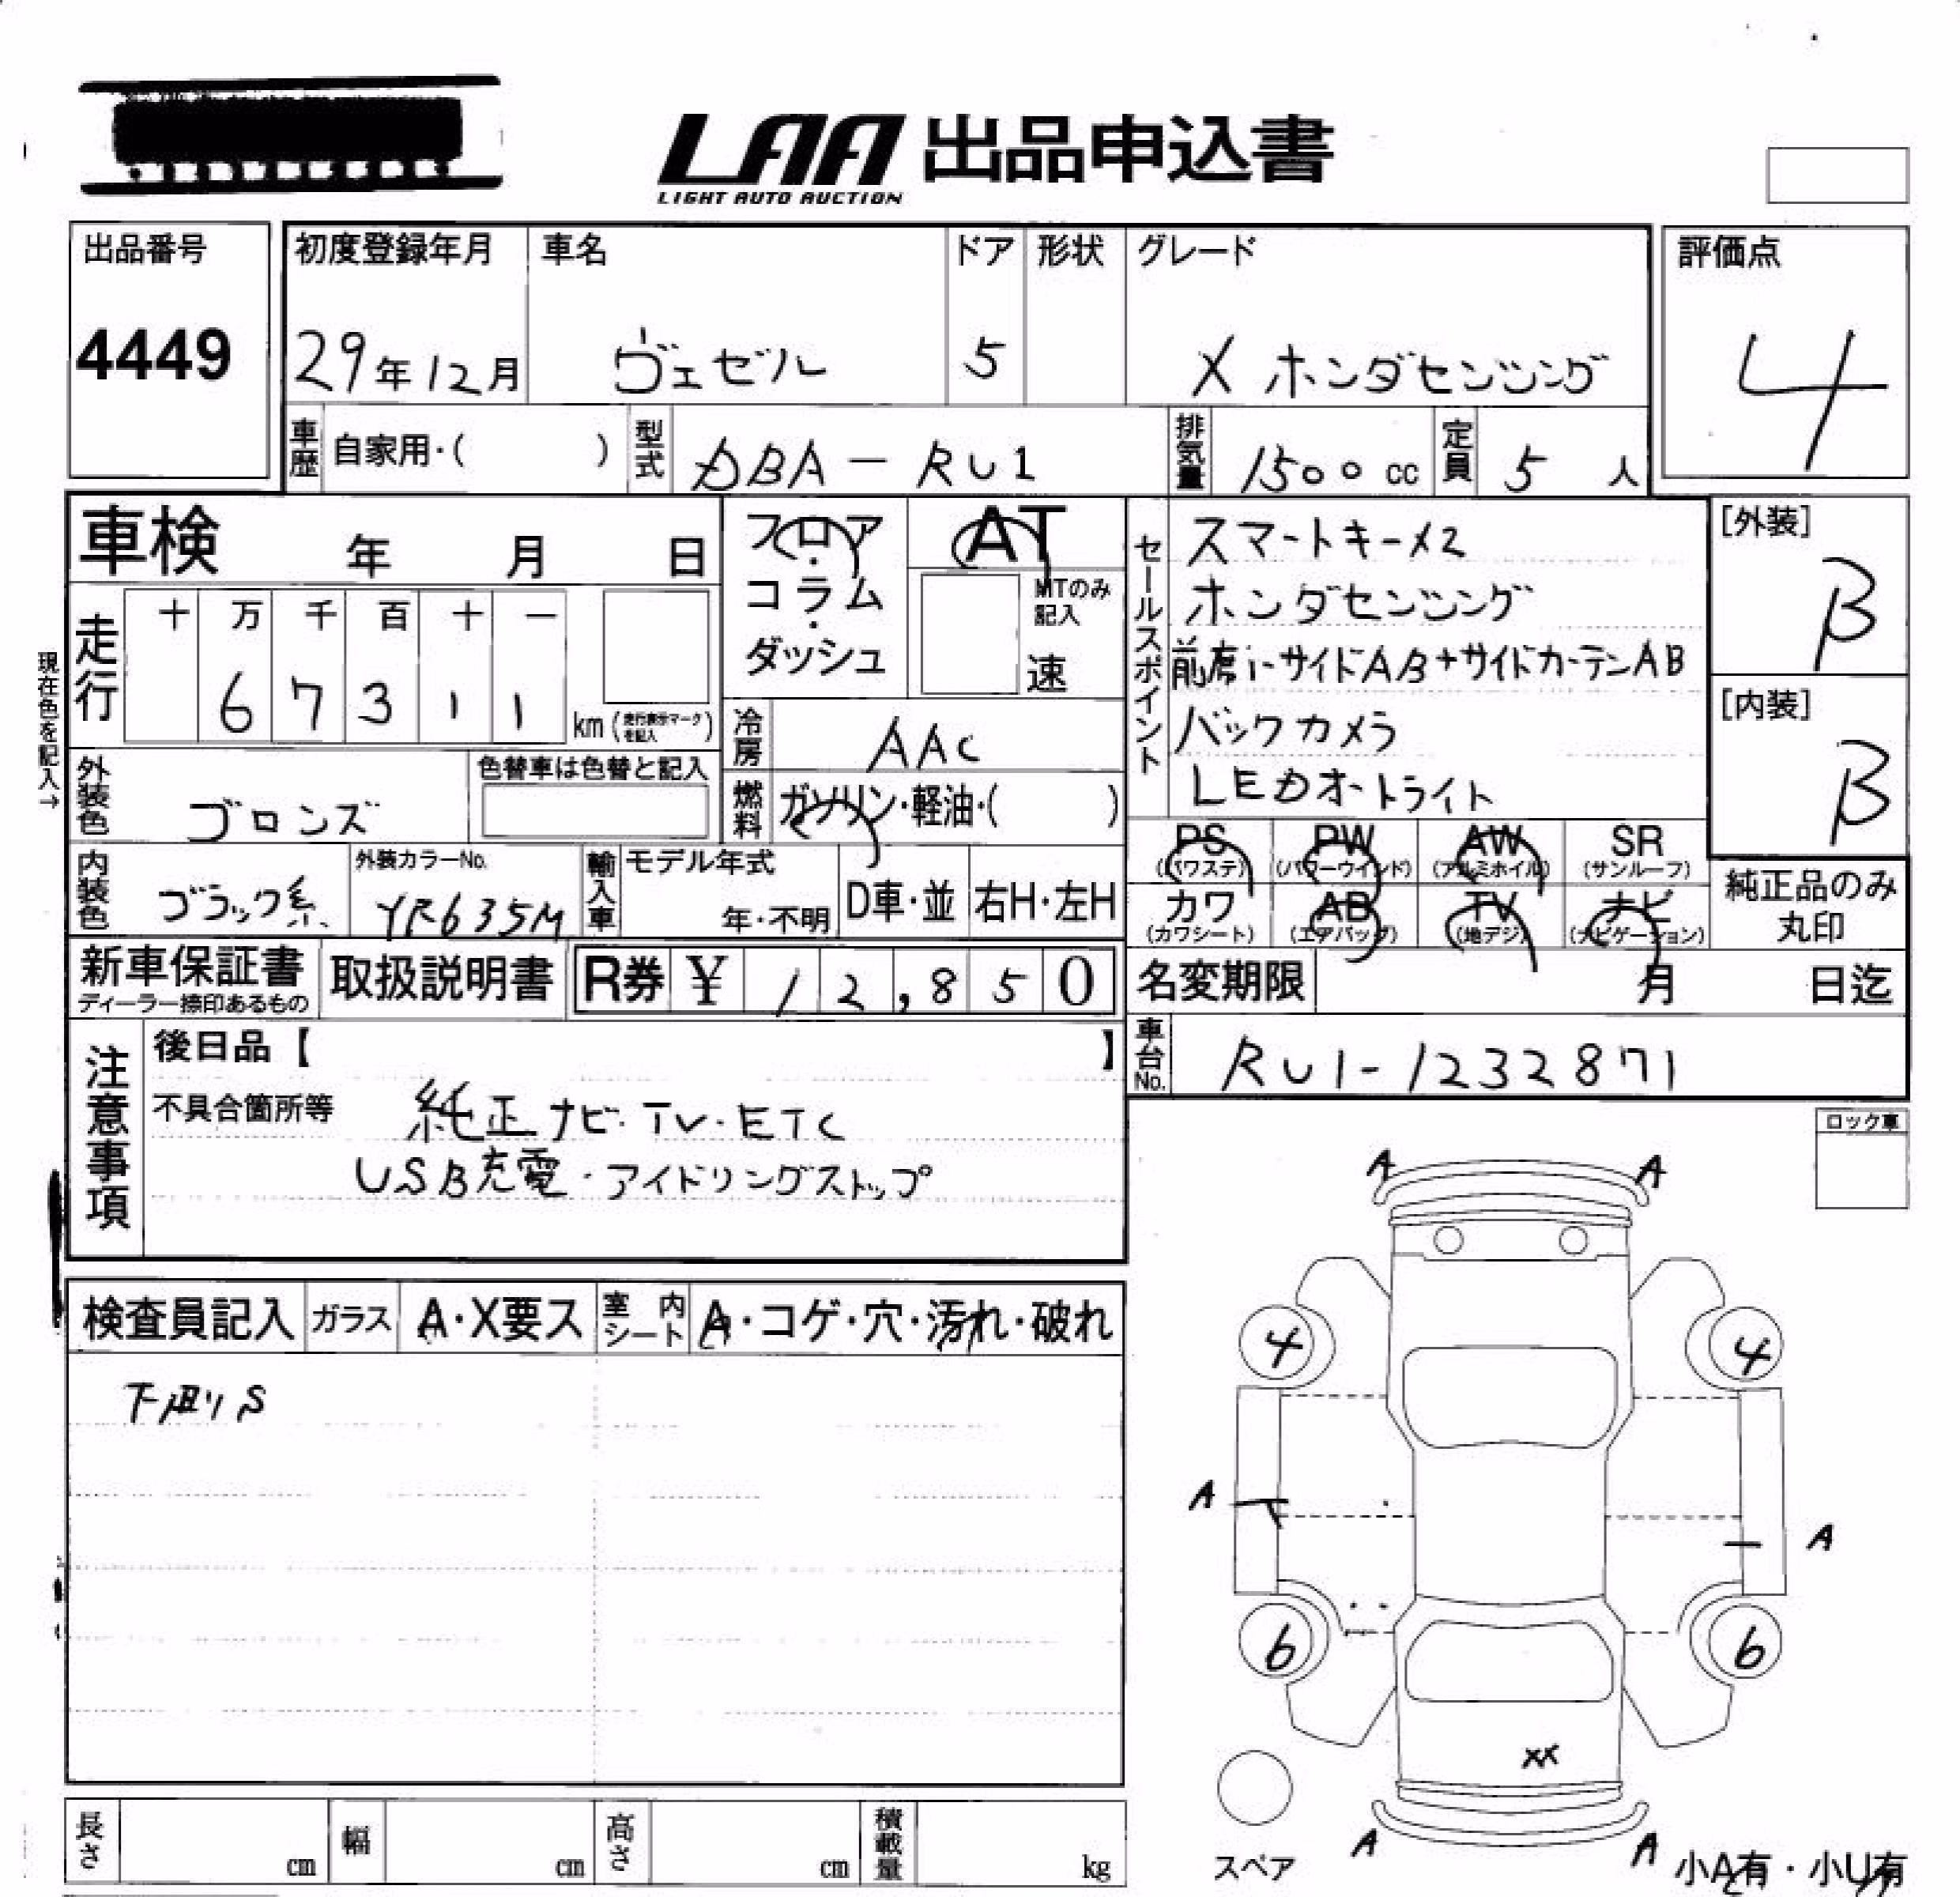 LAA 出品申込書
LIGHT AUTO AUCTION
出品番号
4449
初度登録年月
29年12月
車名
ヴェゼル
ドア
5
形状
グレード
X ホンダセンシング
評価点
4
車歴 自家用・( )
型式 DBA-RU1
排気量 1500 cc
定員 5 人
車検 年 月 日
フロア・コラム・ダッシュ
AT
MTのみ記入
速
セールスポイント
スマートキー×2
ホンダセンシング
前席i-サイドAB+サイドカーテンAB
バックカメラ
LEDオートライト
[外装]
B
[内装]
B
現在色を記入→
走行
十 万 千 百 十 一
6 7 3 1 1
km (走行表示マークを記入)
冷房 AAC
外装色 ブロンズ
色替車は色替と記入
燃料 ガソリン・軽油・( )
内装色 ブラック系
外装カラーNo.
YR635M
輸入車
モデル年式
年・不明
D車・並
右H・左H
PS (パワステ)
PW (パワーウインド)
AW (アルミホイル)
SR (サンルーフ)
カワ (カワシート)
AB (エアバッグ)
TV (地デジ)
ナビ (ナビゲーション)
純正品のみ丸印
新車保証書
ディーラー捺印あるもの
取扱説明書
R券 ¥ 12,850
名変期限 月 日迄
車台No. RU1-1232871
注意事項
後日品【 】
不具合箇所等
純正ナビ・TV・ETC
USB充電・アイドリングストップ
ロック車
検査員記入
ガラス A・X要ス
室内シート A・コゲ・穴・汚れ・破れ
下廻りS
A A
4 4
A
A
6 6
XX
A A
スペア
小A有・小U有
長さ cm
幅 cm
高さ cm
積載量 kg